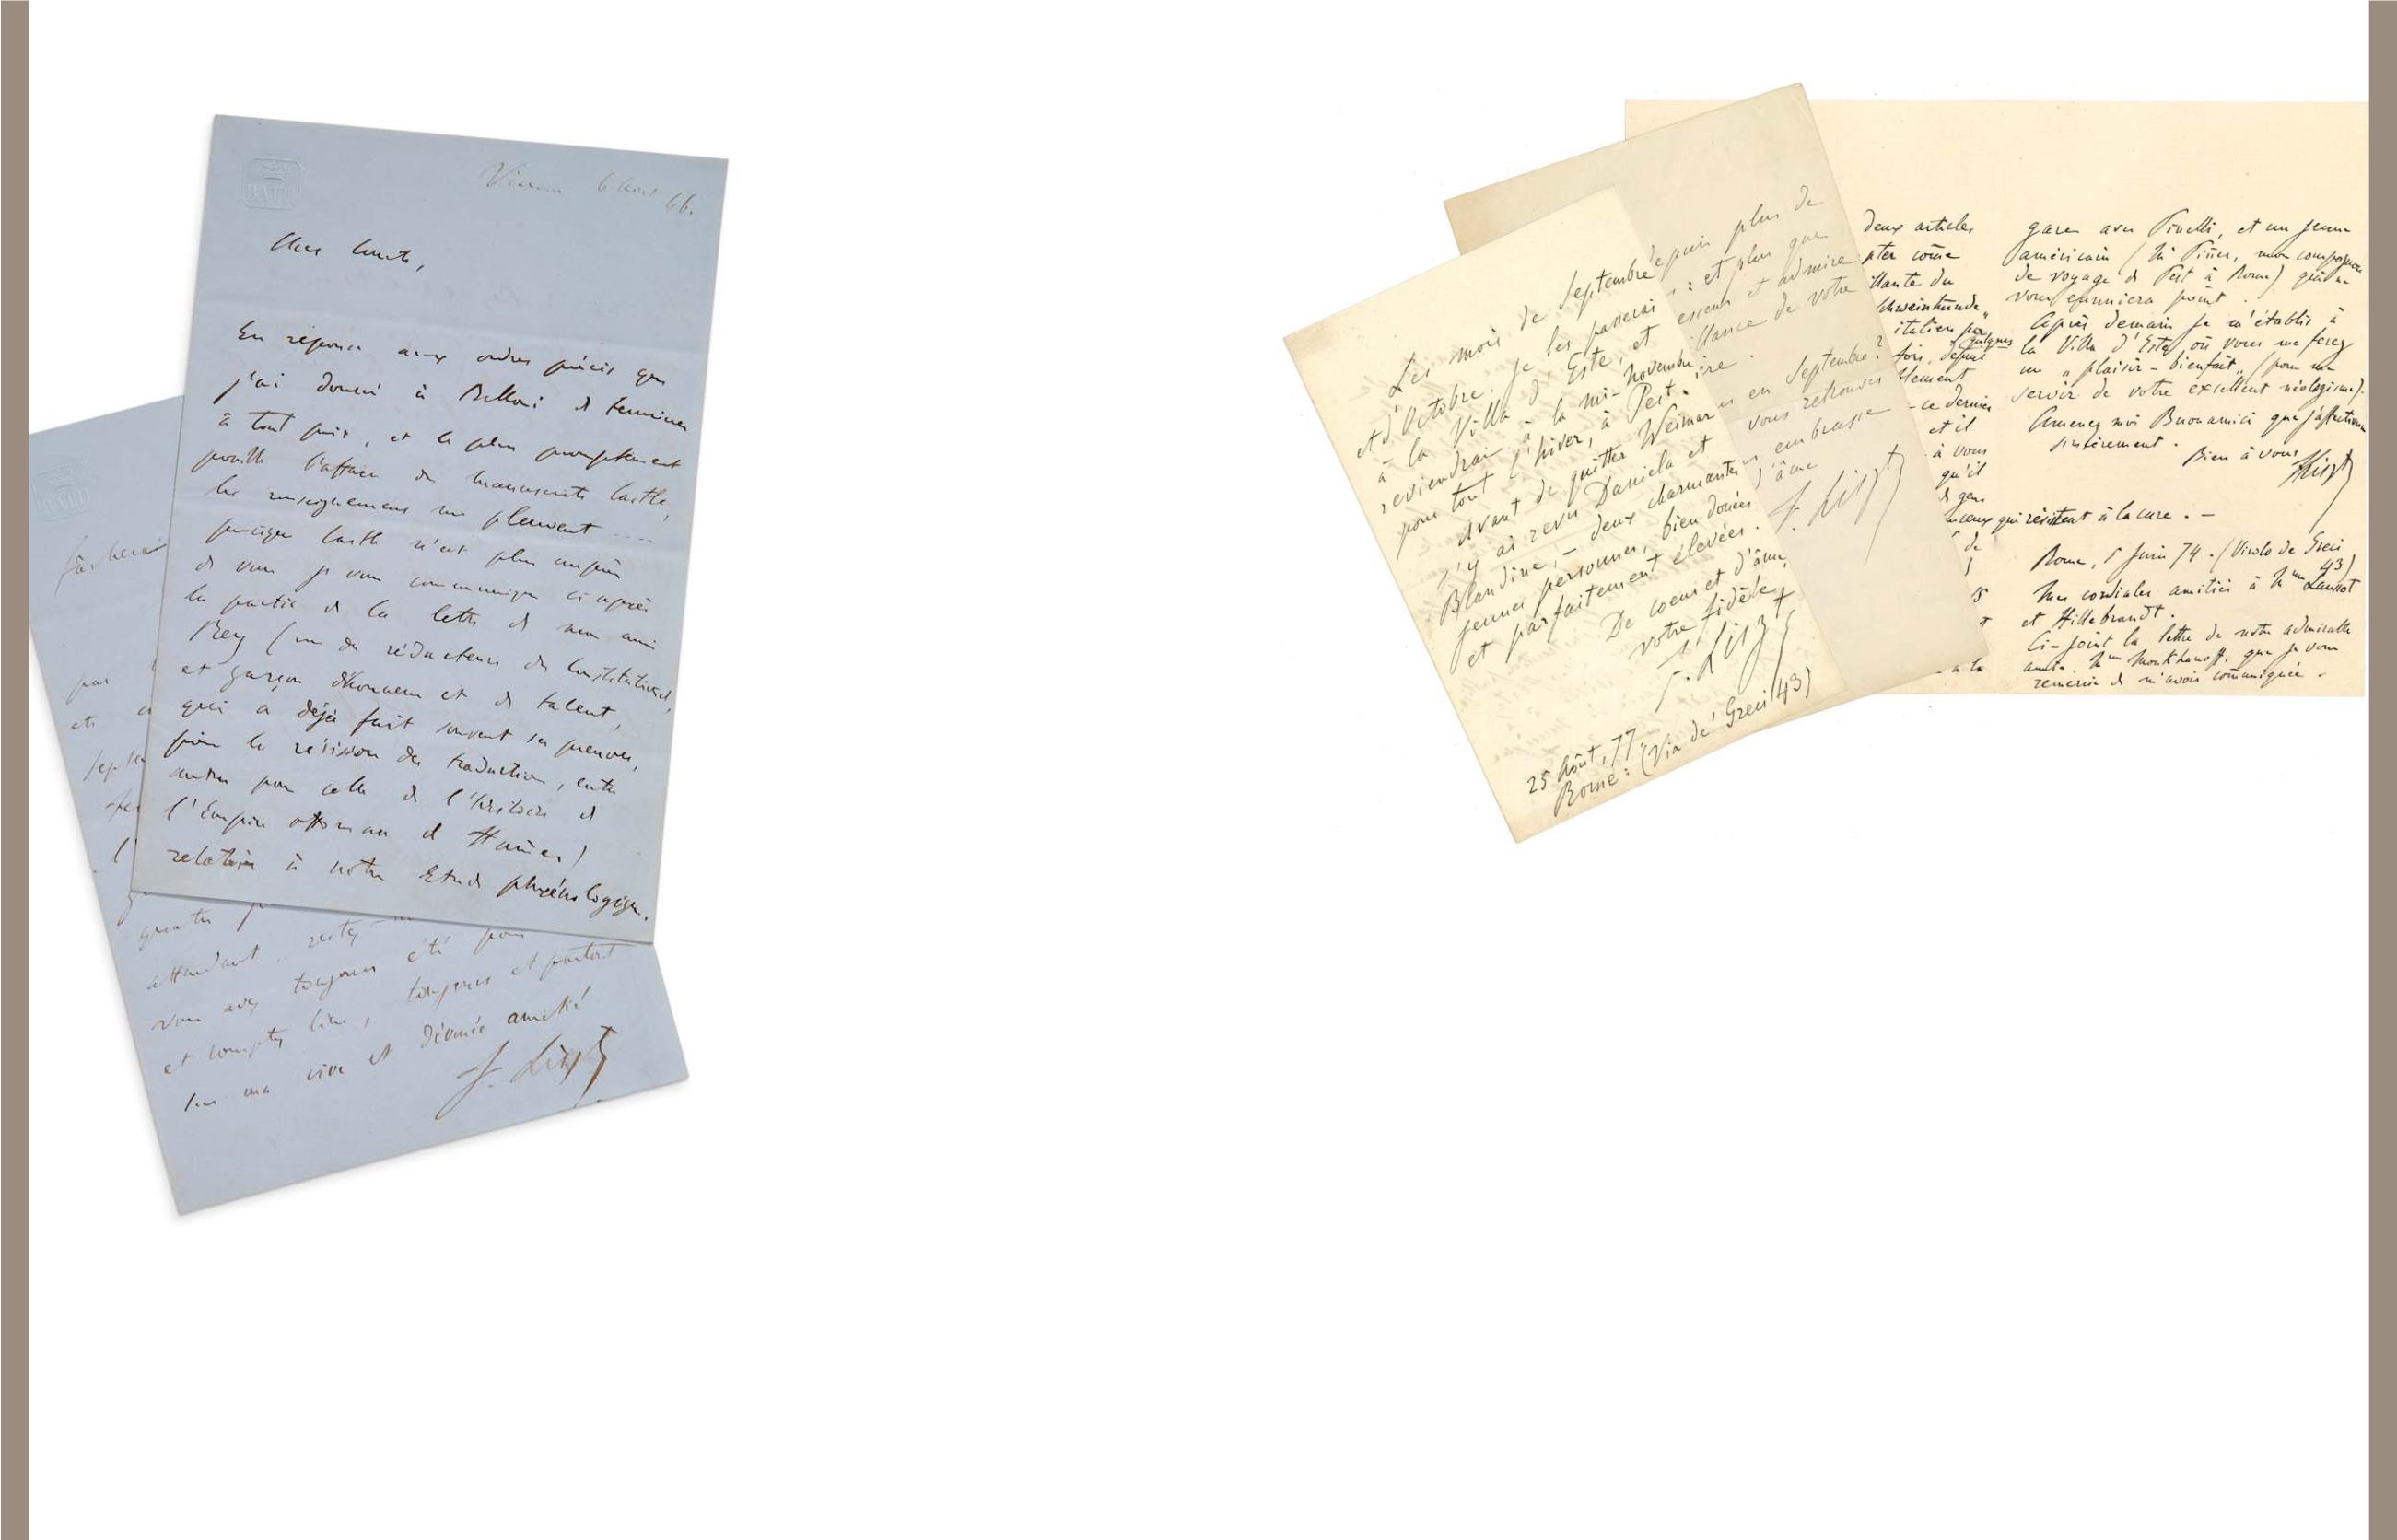 BATH
Cher Comte,
En réponse aux ordres précis que
j'ai donné à Belloni de terminer
à tout prix, et le plus promptement
possible l'affaire du manuscrit Castle,
les renseignemens me pleuvent ....
puisque Castle n'est plus auprès
de vous je vous communique ci après
la partie de la lettre de mon ami
Rey (un des rédacteurs du Constitutionel,
et garçon d'honneur et de talent,
qui a déjà fait souvent ses preuves,
pour la révision des traductions, entre
autres pour celle de l'histoire de
l'Empire ottoman de Hamer)
relative à notre Etude phrénologique.
par
attendant, restez
vous avez toujours été pour
et comptez bien, toujours et partout
sur ma vive et dévouée amitié
F. Liszt
Les mois de Septembre
et d'Octobre je les passerai
à la Villa d'Este, et
reviendrai à la mi-Novembre
pour tout l'hiver, à Pest.
Avant de quitter Weimar
j'y ai revu Daniela et
Blandine, – deux charmantes
jeunes personnes, bien douées
et parfaitement élevées.
De coeur et d'âme,
votre fidèle
F. Liszt
25 Août, 77.
Rome: (Via de' Greci 43)
depuis plus de
: et plus que
et admire
llance de votre
en Septembre?
vous retrouver
embrasse
d'âme
F. Liszt
deux articles
pter come
illante du
Schweinhunde„
italien par
quelques
fois, depuis
blement
– ce dernier
et il
à vous
qu'il
de gens
ceux qui résistent à la cure. –
de
15
à la
gare avec Pinelli, et un jeune
américain (Mr Piñer, mon compagnon
de voyage de Pest à Rome) qui ne
vous ennuiera point.
Après demain je m'établis à
la Villa d'Este, où vous me ferez
un „plaisir – bienfait„ (pour me
servir de votre excellent néologisme).
Amenez moi Buonamici que j'affectionne
sincèrement.
Bien à vous
FLiszt
Rome, 5 Juin 74. (Vicolo de Greci
43)
Mes cordiales amitiés à Mme Laussot
et Hillebrandt.
Ci-joint la lettre de notre admirable
amie. Mme Moukhanoff, que je vous
remercie de m'avoir comuniquée.